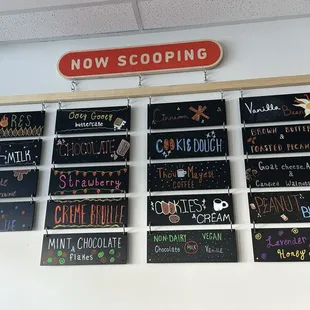 NOW SCOOPING
RES
MILK
Ooey Gooey
buttercake
CHOCOLATE
Strawberry
CREME BRULEE
MINT CHOCOLATE
Flakes
Cinnamon
COOKIE DOUGH
COFFEE
COOKIES
& CREAM
NON-DAIRY VEGAN
Chocolate MILK Vanilla
Vanilla Bean
BROWN BUTTER &
TOASTED PECAN
Goat cheese,
& Candied Walnuts
PEANUT
Lavender
Honey